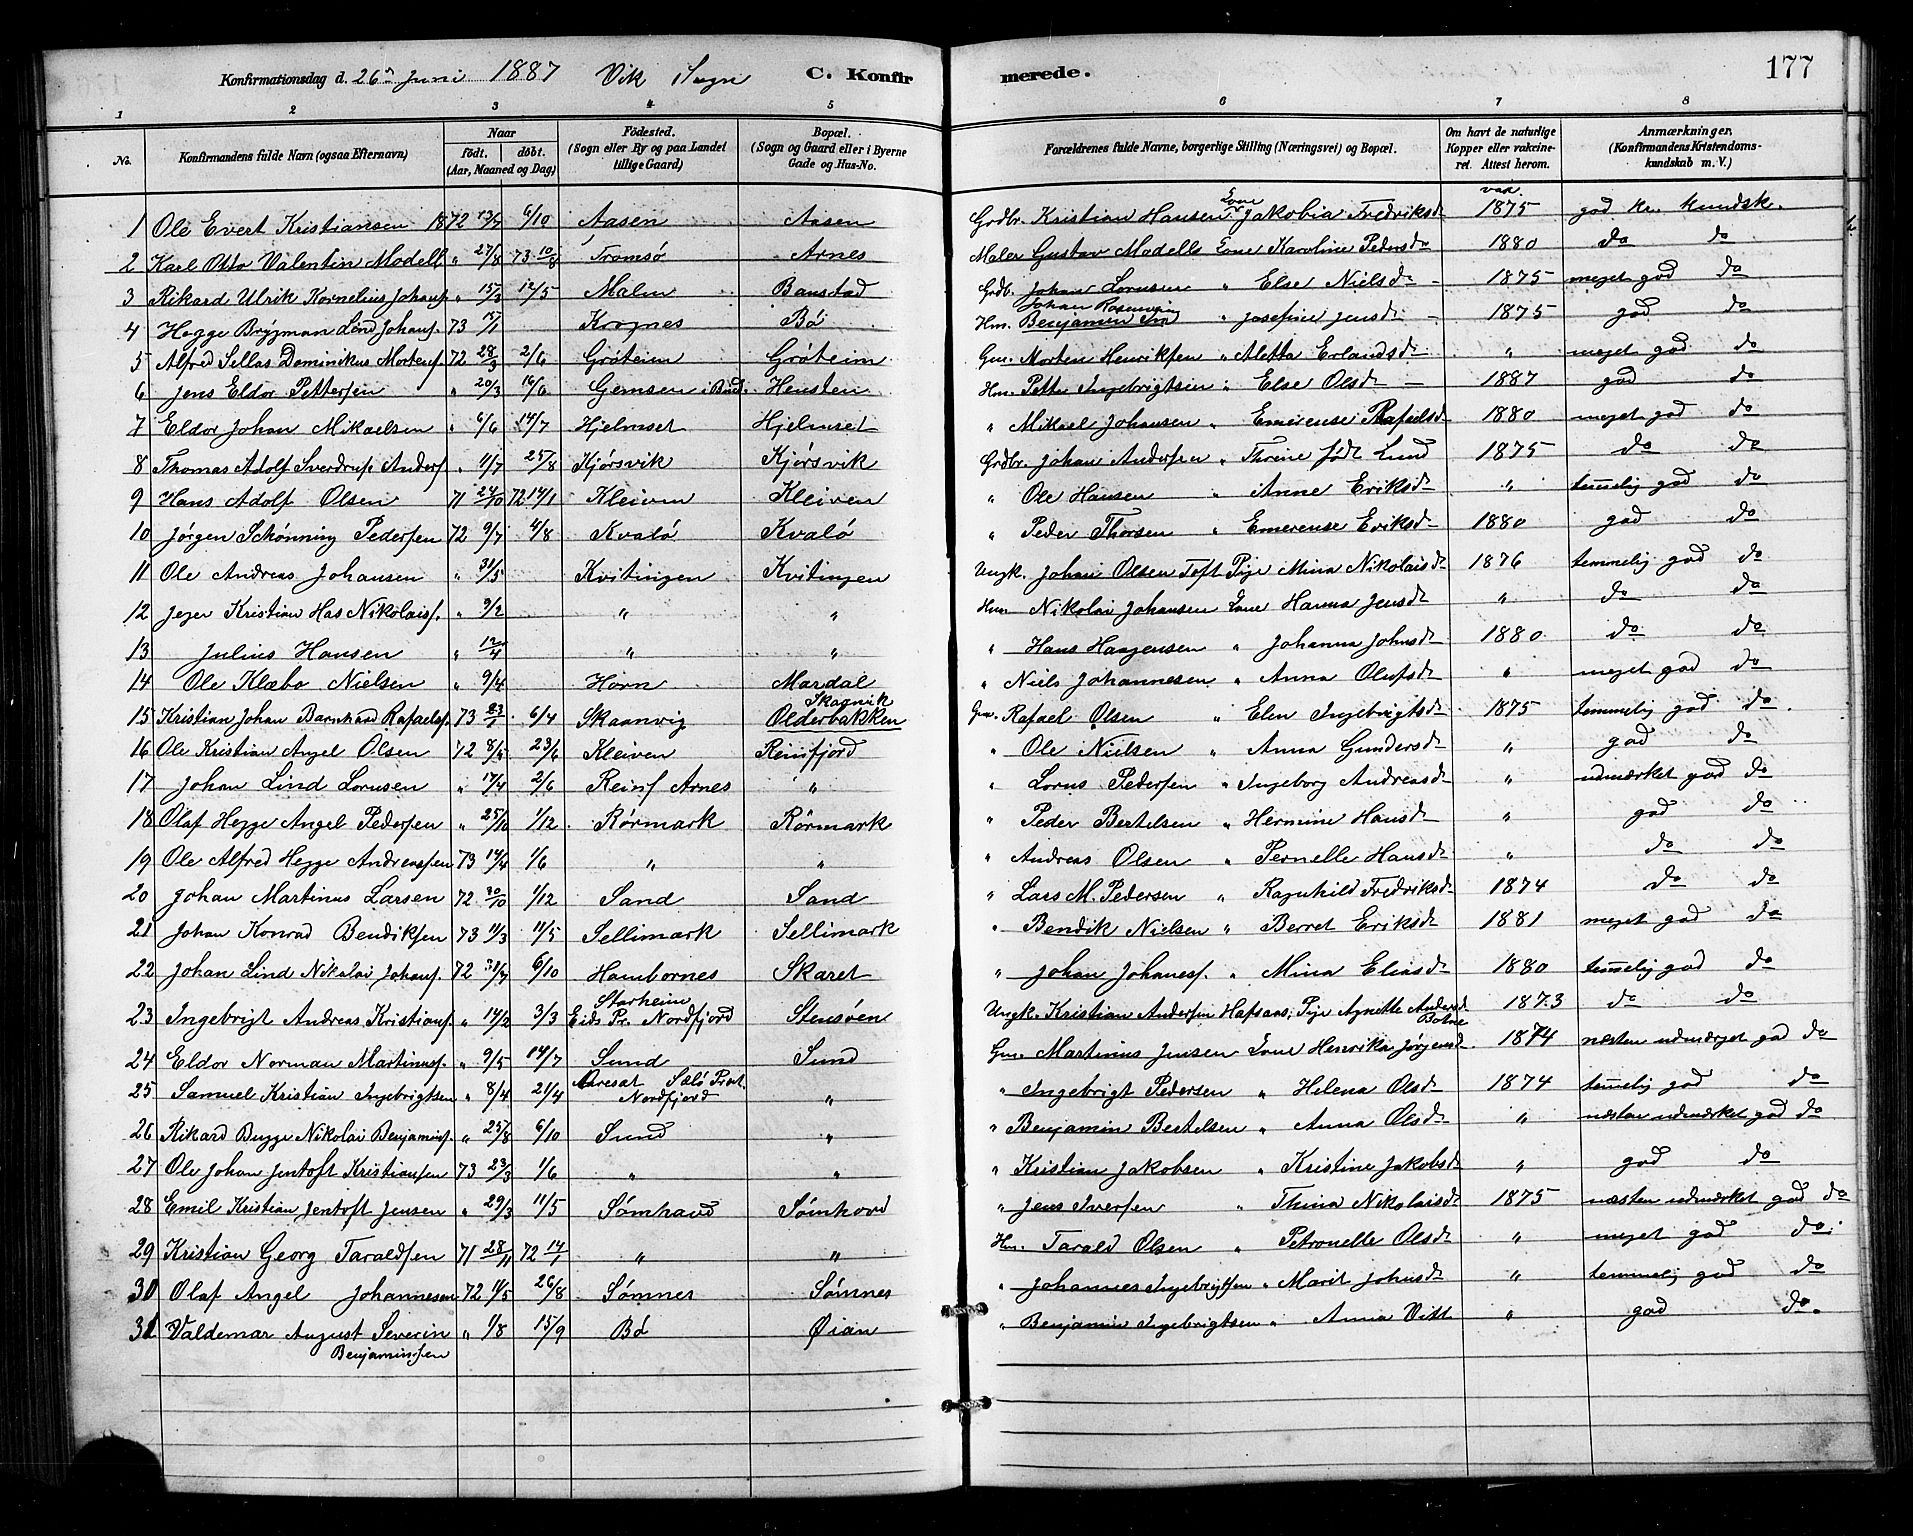 Konfirmationsdag d. 26de Juni 1887 Vik Sogn C. Konfirmerede. 177
1 2 3 4 5 6 7 8
No. Konfirmandens fulde Navn (ogsaa Efternavn) Naar født. døbt. (Aar, Maaned og Dag) Fødested. (Sogn eller By og paa Landet tillige Gaard) Bopæl. (Sogn og Gaard eller i Byerne Gade og Hus-No. Forældrenes fulde Navne, borgerlige Stilling (Næringsvei) og Bopæl. Om havt de naturlige Kopper eller vaccineret. Attest herom. Anmærkninger. (Konfirmandens Kristendomskundskab m. V.)
1 Ole Evert Kristiansen 1872 13/7 6/10 Aasen Aasen Grdbr. Kristian Hansen Kone Jakobia Fredriksd vak. 1875 god kr. kundsk.
2 Karl Otto Valentin Modell " 27/8 73 10/8 Tromsø Arnes Maler Gustav Modell Kone Karoline Pedersd 1880 do do
3 Rikard Ulrik Kornelius Johans. " 15/3 12/5 Malm Banstad Grdb. Johan Lornsen " Else Nielsd 1875 meget god do
4 Hegge Brygman Lind Johans. 73 15/1 Krognes Bø Hm. Benjamin Johan Rosenving " Josefine Jensd 1875 god do
5 Alfred Sellas Dominikus Mortens. 72 28/3 2/6 Grøteim Grøteim Gm. Morten Henriksen " Aletta Erlandsd " meget god do
6 Jens Eldor Pettersen " 20/3 16/6 Gemsen i Bind. Hensten Hm. Petter Ingebrigtsen " Else Olsd 1887 god do
7 Eldor Johan Mikaelsen " 6/6 14/7 Hjelmset Hjelmset " Mikael Johansen " Emerense Rafaelsd 1880 meget god do
8 Thomas Adolf Sverdrup Anders. " 11/7 25/8 Kjørsvik Kjørsvik Grdbr. Johan Andersen " Thrine født Lund 1875 do do
9 Hans Adolf Olsen 71 24/10 72 14/1 Kleiven Kleiven " Ole Hansen " Anne Eriksd " temmelig god do
10 Jørgen Schønning Pedersen 72 9/7 4/8 Kvalø Kvalø " Peder Thorsen " Emerense Eriksd 1880 god do
11 Ole Andreas Johansen " 31/5 Kvitingen Kvitingen Ungk. Johan Olsen Toft Pige Mina Nikolaisd 1876 temmelig god do
12 Jeger Kristian Has Nikolais. " 9/2 " " Hm. Nikolai Johansen Kone Hanna Jensd " do do
13 Julius Hansen " 12/4 " " " Hans Haagensen " Johanna Johnsd 1880 do do
14 Ole Klæbo Nielsen " 9/4 Horn Mardal " Niels Johannesen " Anna Olufsd " meget god do
15 Kristian Johan Barnhard Rafaels. 73 23/1 6/4 Skaanvig Skagvik Olderbakken Gm. Rafael Olsen " Elen Ingebrigtsd 1875 temmelig god do
16 Ole Kristian Angel Olsen 72 8/5 23/6 Kleiven Reinfjord " Ole Nielsen " Anna Gundersd " god do
17 Johan Lind Lornsen " 17/4 2/6 Reinf Arnes " " Lorns Pedersen " Ingeborg Andreasd " udmærket god do
18 Olaf Hegge Angel Pedersen " 25/10 1/12 Rørmark Rørmark " Peder Bertelsen " Hermine Hansd " god do
19 Ole Alfred Hegge Andreassen 73 14/4 1/6 " " " Andreas Olsen " Pernelle Hansd " do do
20 Johan Martinus Larsen 72 30/10 1/12 Sand Sand " Lars M. Pedersen " Ragnhild Fredriksd 1874 do do
21 Johan Konrad Bendiksen 73 11/3 11/5 Sellimark Sellimark " Bendik Nielsen " Berret Eriksd 1881 meget god do
22 Johan Lind Nikolai Johans. 72 31/7 6/10 Hambornes Skaret " Johan Johanes. " Mina Eliasd 1880 temmelig god do
23 Ingebrigt Andreas Kristians. " 14/2 3/3 Starheim Eids Pr. Nordfjord Stensøen Ungk. Kristian Andersen Hafsaas; Pige Agnette Andersd Botne 1873 do do
24 Eldor Norman Martinus. " 9/5 14/7 Sund Sund Gm. Martinus Jensen Kone Henrika Jørgensd 1874 næsten udmærget god do
25 Samuel Kristian Ingebrigtsen " 8/4 21/4 Sælø Præst. Nordfjord " " Ingebrigt Pedersen " Helena Olsd 1874 temmelig god do
26 Rikard Bugge Nikolai Benjamins. " 25/8 6/10 Sund " " Benjamin Bertelsen " Anna Olsd " næsten udmærket god do
27 Ole Johan Jentoft Kristiansen 73 23/3 1/6 " " " Kristian Jakobsen " Kristine Jakobsd " god do
28 Emil Kristian Jentoft Jensen " 29/3 11/5 Sømhavd Sømhovd " Jens Iversen " Thina Nikolaisd 1875 næsten udmærket god do
29 Kristian Georg Taraldsen 71 28/11 72 14/1 " " Hm. Tarald Olsen " Petronelle Olsd " meget god do
30 Olaf Angel Johannesen 72 11/5 26/8 Sømnes Sømnes " Johannes Ingebrigtsen " Marit Johnsd " temmelig god do
31 Valdemar August Severin Benjaminsen " 1/8 15/9 Bø Øian " Benjamin Ingebrigtsen " Anna Vitt " god do.